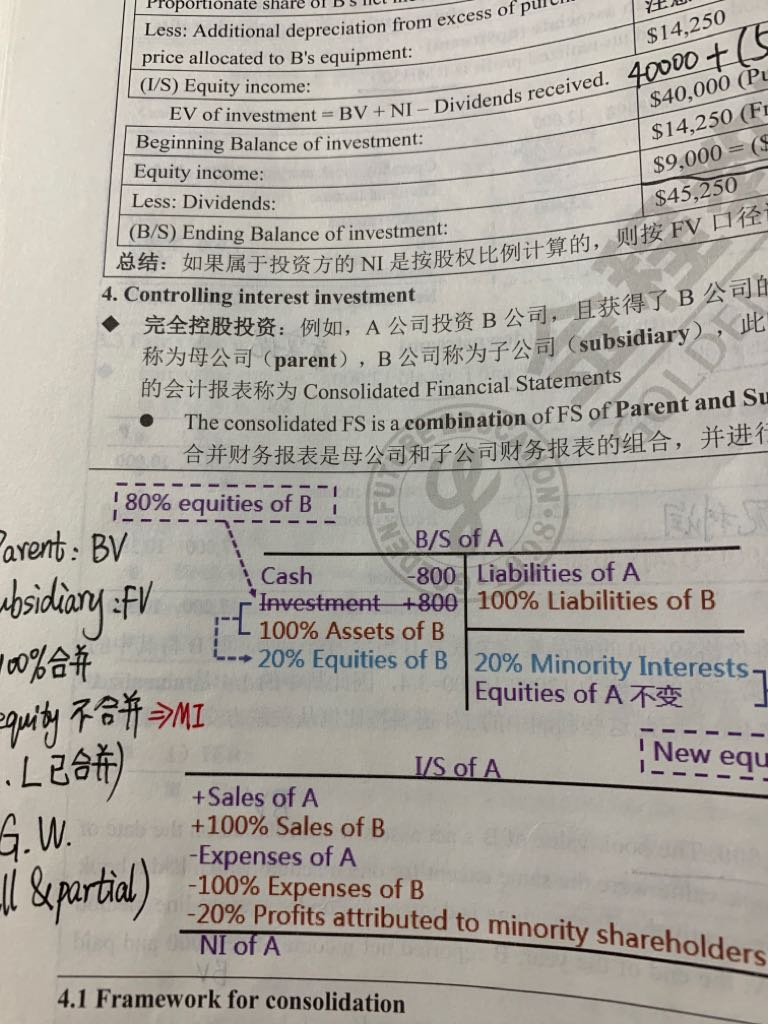 Proportionate share of B's net
Less: Additional depreciation from excess of
price allocated to B's equipment:
$14,250
(I/S) Equity income:
40000 + (5
EV of investment = BV + NI – Dividends received.
Beginning Balance of investment:
$40,000 (Pu
Equity income:
$14,250 (Fr
Less: Dividends:
$9,000 = ($
(B/S) Ending Balance of investment:
$45,250
总结：如果属于投资方的 NI 是按股权比例计算的，则按 FV 口径
4. Controlling interest investment
◆ 完全控股投资：例如，A 公司投资 B 公司，且获得了 B 公司的
称为母公司（parent），B 公司称为子公司（subsidiary），此
的会计报表称为 Consolidated Financial Statements
● The consolidated FS is a combination of FS of Parent and Su
合并财务报表是母公司和子公司财务报表的组合，并进行
80% equities of B
Parent: BV
B/S of A
Cash -800 Liabilities of A
ubsidiary: FV
Investment +800 100% Liabilities of B
100% Assets of B
100%合并
20% Equities of B 20% Minority Interests
equity 不合并⇒MI
Equities of A 不变
. L已合并)
New equ
I/S of A
+Sales of A
G.W.
+100% Sales of B
-Expenses of A
ll & partial)
-100% Expenses of B
-20% Profits attributed to minority shareholders
NI of A
4.1 Framework for consolidation